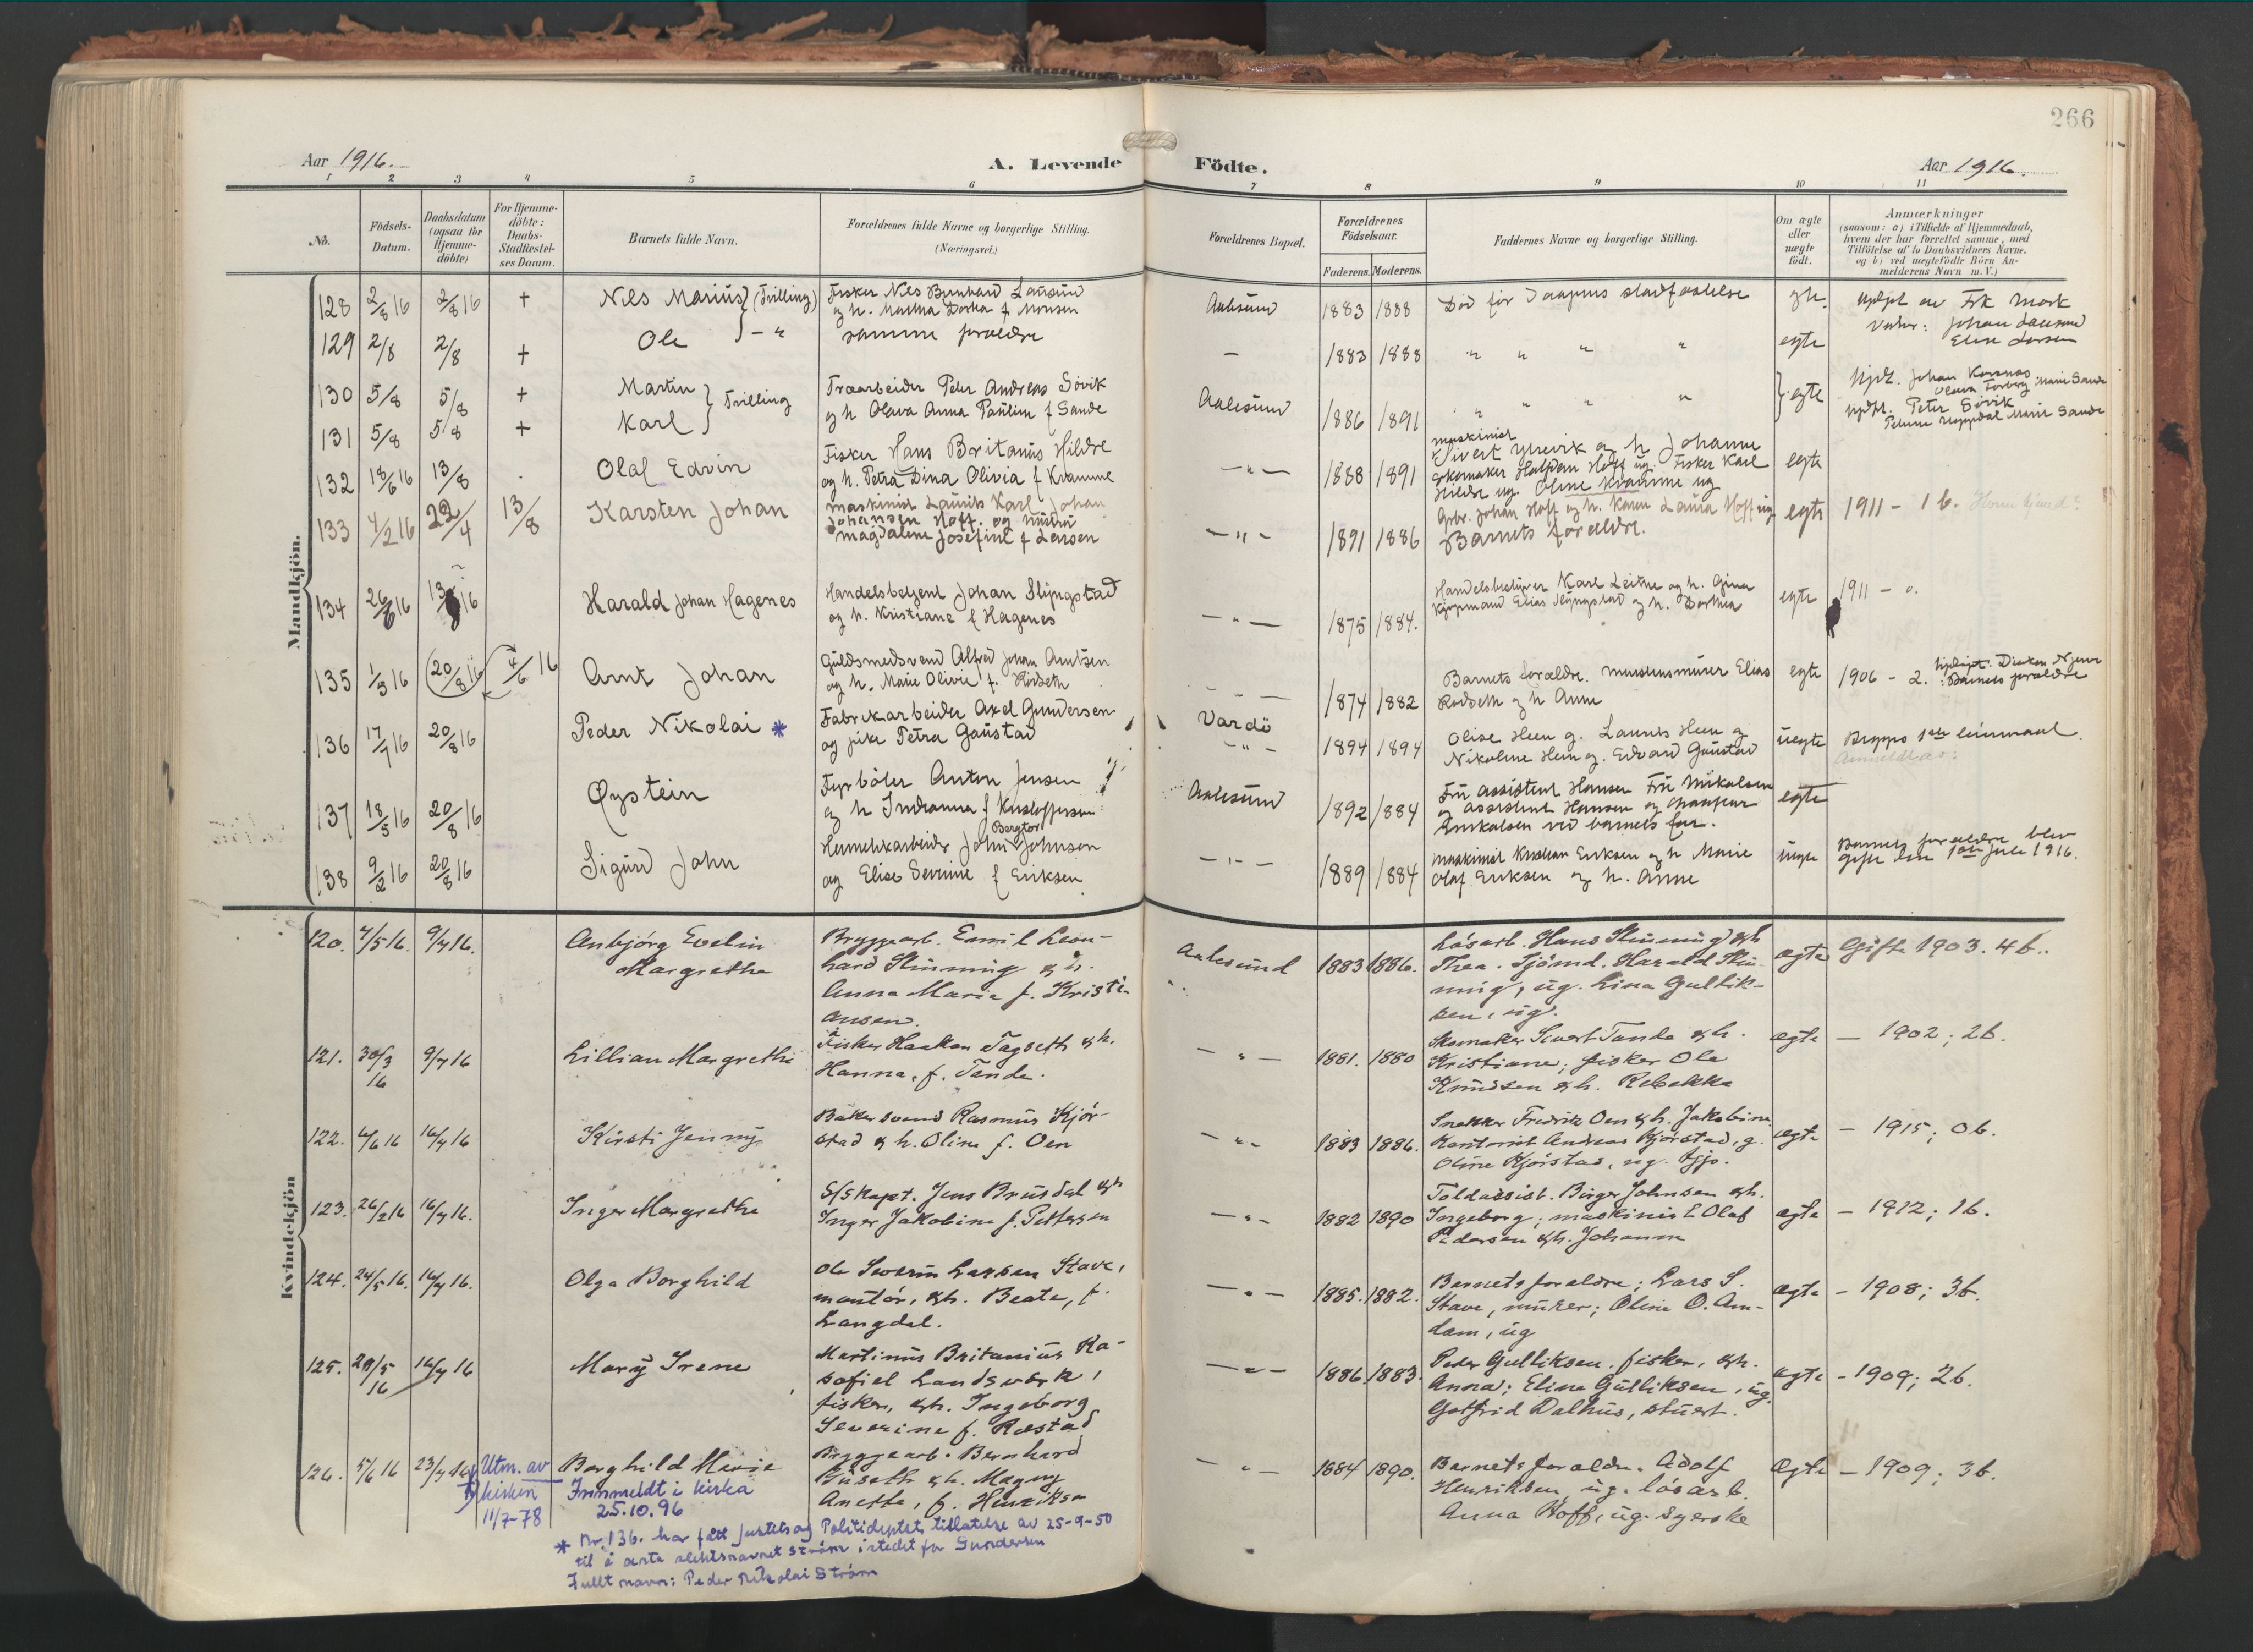 266
Aar 1916.
A. Levende Födte.
Aar 1916.
1 2 3 4 5 6 7 8 9 10 11
No.
Födsels-Datum.
Daabsdatum (ogsaa för Hjemme-döbte)
For Hjemme-döbte: Daabs-Stadfæstel-ses Datum.
Barnets fulde Navn.
Forældrenes fulde Navne og borgerlige Stilling. (Næringsvei.)
Forældrenes Bopæl.
Forældrenes Födselsaar.
Faderens. Moderens.
Faddernes Navne og borgerlige Stilling.
Om ægte eller uægte födt.
Anmærkninger
(saasom: a) i Tilfælde af Hjemmedaab,
hvem der har forrettet samme, med
Tilföielse af to Daabsvidners Navne.
og b) ved uægtefödte Börn An-
melderens Navn m. V.)
Mandkjön.
128 2/8 16 2/8 16 + Nils Marius (Trilling) Fisker Nils Bernhard Lausund
og h. Martha Dorthea f Monsen
Aalesund 1883 1888 Död för Daapens stadfæstelse
129 2/8 2/8 + Ole – " samme forældre – 1883 1888 " " " " egte
130 5/8 5/8 + Martin } Trilling Træarbeider Peter Andreas Sövik
131 5/8 5/8 + Karl og h Olava Anna Pauline f Sande
Aalesund 1886 1891 " " " " egte
132 18/6 16 13/8 Olaf Edvin Fisker Hans Britanus Hildre
og h. Petra Dina Olivia f Kramme
– " – 1888 1891 maskinist Sivert
og h Johanne
skomaker Halfdan Hoff ug. Fisker Karl
Hildre ug. Oline Kramme ug
egte
133 4/2 16 22/4 13/8 Karsten Johan maskinist Laurits Karl Johan
Johansen Hoff. og hustru
Magdalene Josefine f Larsen
– " – 1891 1886 Arb. Johan Hoff og h. Karen Laura Hoff ug
Barnets forældre.
egte 1911 – 1 b.
134 26/6 16 13 16 Harald Johan Hagenes Handelsbetjent Johan Slyngstad
og h. Kristiane f Hagenes
– " – 1875 1884. Handelsbestyrer Karl Leitne og h. Gina
Kjøpmand Elias Slyngstad og h. Dorthea
egte 1911 – 0.
135 1/5 16 20/8 16 4/6 16 Arnt Johan Guldsmedsvend Alfred Johan Arntsen
og h. Marie Olivie f. Rödseth
– " – 1874 1882 Barnets forældre. mursmurer Elias
Rödseth og h Anne
egte 1906 – 2.
Barnets forældre
136 17/7 16 20/8 16 Peder Nikolai * Fabrikarbeider Axel Gundersen
og pike Petra Gaustad
Vardö – " – 1894 1894 Olise Heen g. Laurits Heen og
Nikoline Heen g. Edvard Gaustad
uegte
137 18/5 16 20/8 16 Øystein Fyrböter Anton Jensen
og h Indianna f Kristoffersen
Aalesund 1892 1884 Fru assistent Hansen Fru Mikalsen
og assistent Hansen og
Mikalsen ved barnets far.
egte
138 9/2 16 20/8 16 Sigurd John Hermetikarbeider John Bergtor Johnson
og Elise Severine f Eriksen
– " – 1889 1884 maskinist Kristian Eriksen og h Marie
Olaf Eriksen og h. Anne
uegte Barnets forældre blev
gift den 1ste juli 1916.
Kvindekjön
120. 7/5 16. 9/7 16. Anbjörg Evelin
Margrethe
Bryggearb. Emil Leon-
hard Skinning & h.
Anna Marie f. Kristi-
ansen.
Aalesund 1883 1886. Lösarb. Hans Skinning & h
Thea. Sjömd. Harald Skin-
ning, ug. Lina Gullik-
sen, ug.
ægte Gifte 1903. 4 b.
121. 30/3 16 9/7 16 Lillian Margrethe Fisker Haakon Tagseth & h.
Hanna, f. Tande.
– " – 1881. 1880 Skomaker Sivert Tande & h.
Kristiane; fisker Ole
Knudsen & h. Rebekka
ægte – 1902; 2 b.
122. 6/6 16 16/7 16 Kirsti Jenny Bakersvend Rasmus Kjör-
stad & h. Oline f. Oen
– " – 1883 1886. Snekker Fredrik Oen & h. Jakobine
Kontorist Andreas Kjörstad, g.
Oline Kjörstad, ug.
ægte – 1915; 0 b.
123. 26/2 16 16/7 16. Inger Margrethe S/S kapt. Jens Brusdal & h
Inger Jakobine f. Pettersen
– " – 1882 1890 Toldassist. Birger Johnsen & h.
Ingeborg; maskinist Olaf
Pedersen & h. Johanne
ægte – 1912; 1 b.
124. 24/5 16. 16/7 16. Olga Borghild Ole Severin Larsen Stave,
montör, & h. Beate, f.
Langdal.
– " – 1885. 1882. Barnets forældre; Lars S.
Stave, murer; Oline O. Am-
dam, ug
ægte – 1908; 3 b.
125. 29/5 16 16/7 16 Mary Irene Martinus Britanius Ra-
sofiel Landsverk,
fisker, & h. Ingeborg
Severine f. Røstad
– " – 1886. 1883. Peder Gulliksen, fisker, & h.
Anna; Eline Gulliksen, ug.
Gotfrid Dalhus, stuert.
ægte – 1909; 2 b.
126. 5/6 16 23/7 16 Utm. av
kirken
11/7-78
Borghild Marie
Innmeldt i kirka
25.10.96
Bryggearb. Bernhard
Huseth & h. Magny
Anette, f. Henriksen
– " – 1884 1890. Barnets forældre. Adolf
Henriksen, ug. lösarb.
Anna Hoff, ug. syerske
Ægte – 1909; 3 b.
* Nr. 136. har fått Justits og Politideptets tillatelse av 25-9-50
til å anta slektsnavnet Ström istedet for Gundersen
Fullt navn: Peder Nikolai Ström